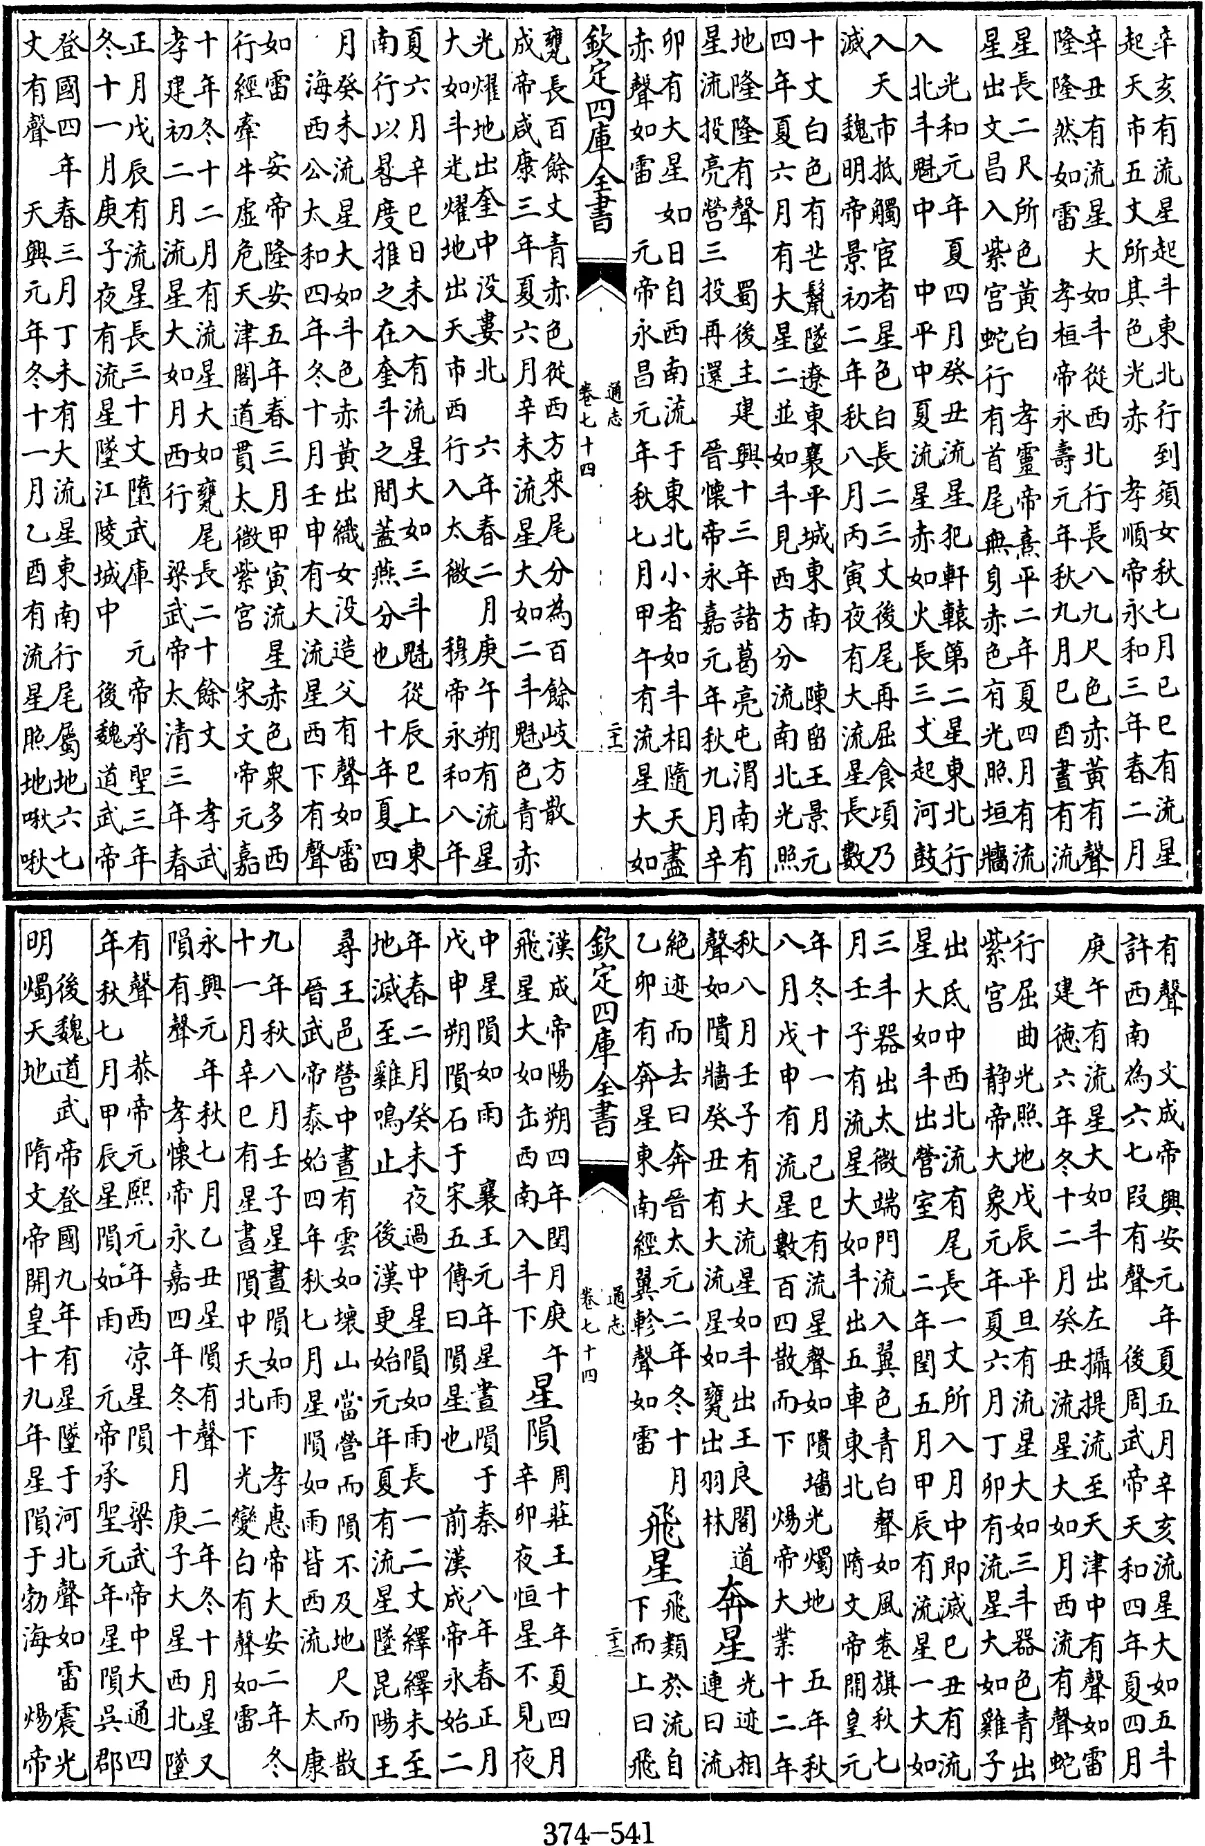 辛亥有流星起斗東北行到須女秋七月己巳有流星
起天市五丈所其色光赤 孝順帝永和三年春二月
辛丑有流星大如斗從西北行長八九尺色赤黃有聲
隆隆然如雷 孝桓帝永壽元年秋九月己酉晝有流
星長二尺所色黃白 孝靈帝熹平二年夏四月有流
星出文昌入紫宮蛇行有首尾無身赤色有光照垣牆
光和元年夏四月癸丑流星犯軒轅第二星東北行
入北斗魁中 中平中夏流星赤如火長三丈起河鼓
入天市抵觸宦者星色白長二三丈後尾再屈食頃乃
滅 魏明帝景初二年秋八月丙寅夜有大流星長數
十丈白色有芒鬛墜遼東襄平城東南 陳留王景元
四年夏六月有大星二並如斗見西方分流南北光照
地隆隆有聲 蜀後主建興十三年諸葛亮屯渭南有
星流投亮營三投再還 晉懷帝永嘉元年秋九月辛
卯有大星如日自西南流于東北小者如斗相隨天盡
赤聲如雷 元帝永昌元年秋七月甲午有流星大如
欽定四庫全書
通志
卷七十四
二十二
甕長百餘丈青赤色從西方來尾分為百餘歧方散
成帝咸康三年夏六月辛未流星大如二斗魁色青赤
光耀地出奎中没婁北 六年春二月庚午朔有流星
大如斗光耀地出天市西行入太微 穆帝永和八年
夏六月辛巳日未入有流星大如三斗魁從辰巳上東
南行以晷度推之在奎斗之間蓋燕分也 十年夏四
月癸未流星大如斗色赤黃出織女没造父有聲如雷
海西公太和四年冬十月壬申有大流星西下有聲
如雷 安帝隆安五年春三月甲寅流星赤色衆多西
行經牽牛虛危天津閣道貫太微紫宮 宋文帝元嘉
十年冬十二月有流星大如甕尾長二十餘丈 孝武
孝建初二月流星大如月西行 梁武帝太清三年春
正月戊辰有流星長三十丈墮武庫 元帝承聖三年
冬十一月庚子夜有流星墜江陵城中 後魏道武帝
登國四年春三月丁未有大流星東南行尾屬地六七
丈有聲 天興元年冬十一月乙酉有流星照地啾啾
有聲 文成帝興安元年夏五月辛亥流星大如五斗
許西南為六七段有聲 後周武帝天和四年夏四月
庚午有流星大如斗出左攝提流至天津中有聲如雷
建德六年冬十二月癸丑流星大如月西流有聲蛇
行屈曲光照地戊辰平旦有流星大如三斗器色青出
紫宮 靜帝大象元年夏六月丁卯有流星大如雞子
出氐中西北流有尾長一丈所入月中即滅已丑有流
星大如斗出營室 二年閏五月甲辰有流星一大如
三斗器出太微端門流入翼色青白聲如風巻旗秋七
月壬子有流星大如斗出五車東北 隋文帝開皇元
年冬十一月己巳有流星聲如隤墻光燭地 五年秋
八月戊申有流星數百四散而下 煬帝大業十二年
秋八月壬子有大流星如斗出王良閣道
聲如隤牆癸丑有大流星如甕出羽林
奔星
光迹相
連曰流
絶迹而去曰奔晉太元二年冬十月
乙卯有奔星東南經翼軫聲如雷
飛星
飛類於流自
下而上曰飛
欽定四庫全書
通志
卷七十四
二十三
漢成帝陽朔四年閏月庚午
飛星大如缶西南入斗下
星隕
周莊王十年夏四月
辛卯夜恒星不見夜
中星隕如雨 襄王元年星晝隕于秦 八年春正月
戊申朔隕石于宋五傳曰隕星也 前漢成帝永始二
年春二月癸未夜過中星隕如雨長一二丈繹繹未至
地滅至雞鳴止 後漢更始元年夏有流星墜昆陽王
尋王邑營中晝有雲如壞山當營而隕不及地尺而散
晉武帝泰始四年秋七月星隕如雨皆西流 太康
九年秋八月壬子星晝隕如雨 孝惠帝大安二年冬
十一月辛巳有星晝隕中天北下光變白有聲如雷
永興元年秋七月乙丑星隕有聲 二年冬十月星又
隕有聲 孝懷帝永嘉四年冬十月庚子大星西北墜
有聲 恭帝元熙元年西凉星隕 梁武帝中大通四
年秋七月甲辰星隕如雨 元帝承聖元年星隕吳郡
後魏道武帝登國九年有星墜于河北聲如雷震光
明燭天地 隋文帝開皇十九年星隕于勃海 煬帝
374-541